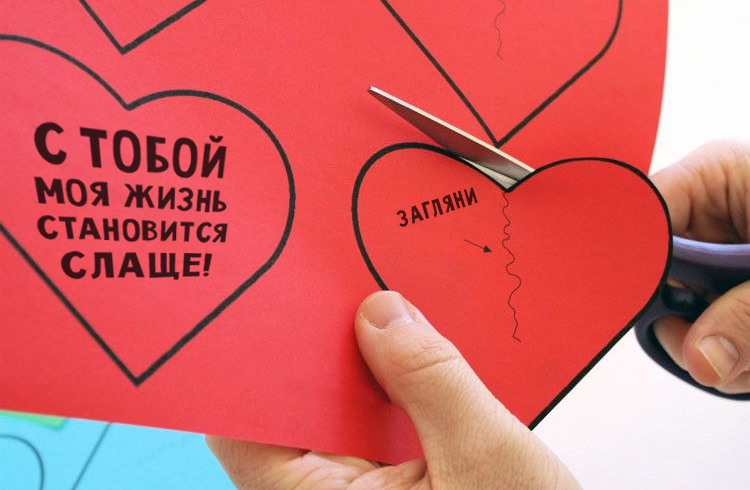 С ТОБОЙ
МОЯ ЖИЗНЬ
СТАНОВИТСЯ
СЛАЩЕ!
ЗАГЛЯНИ